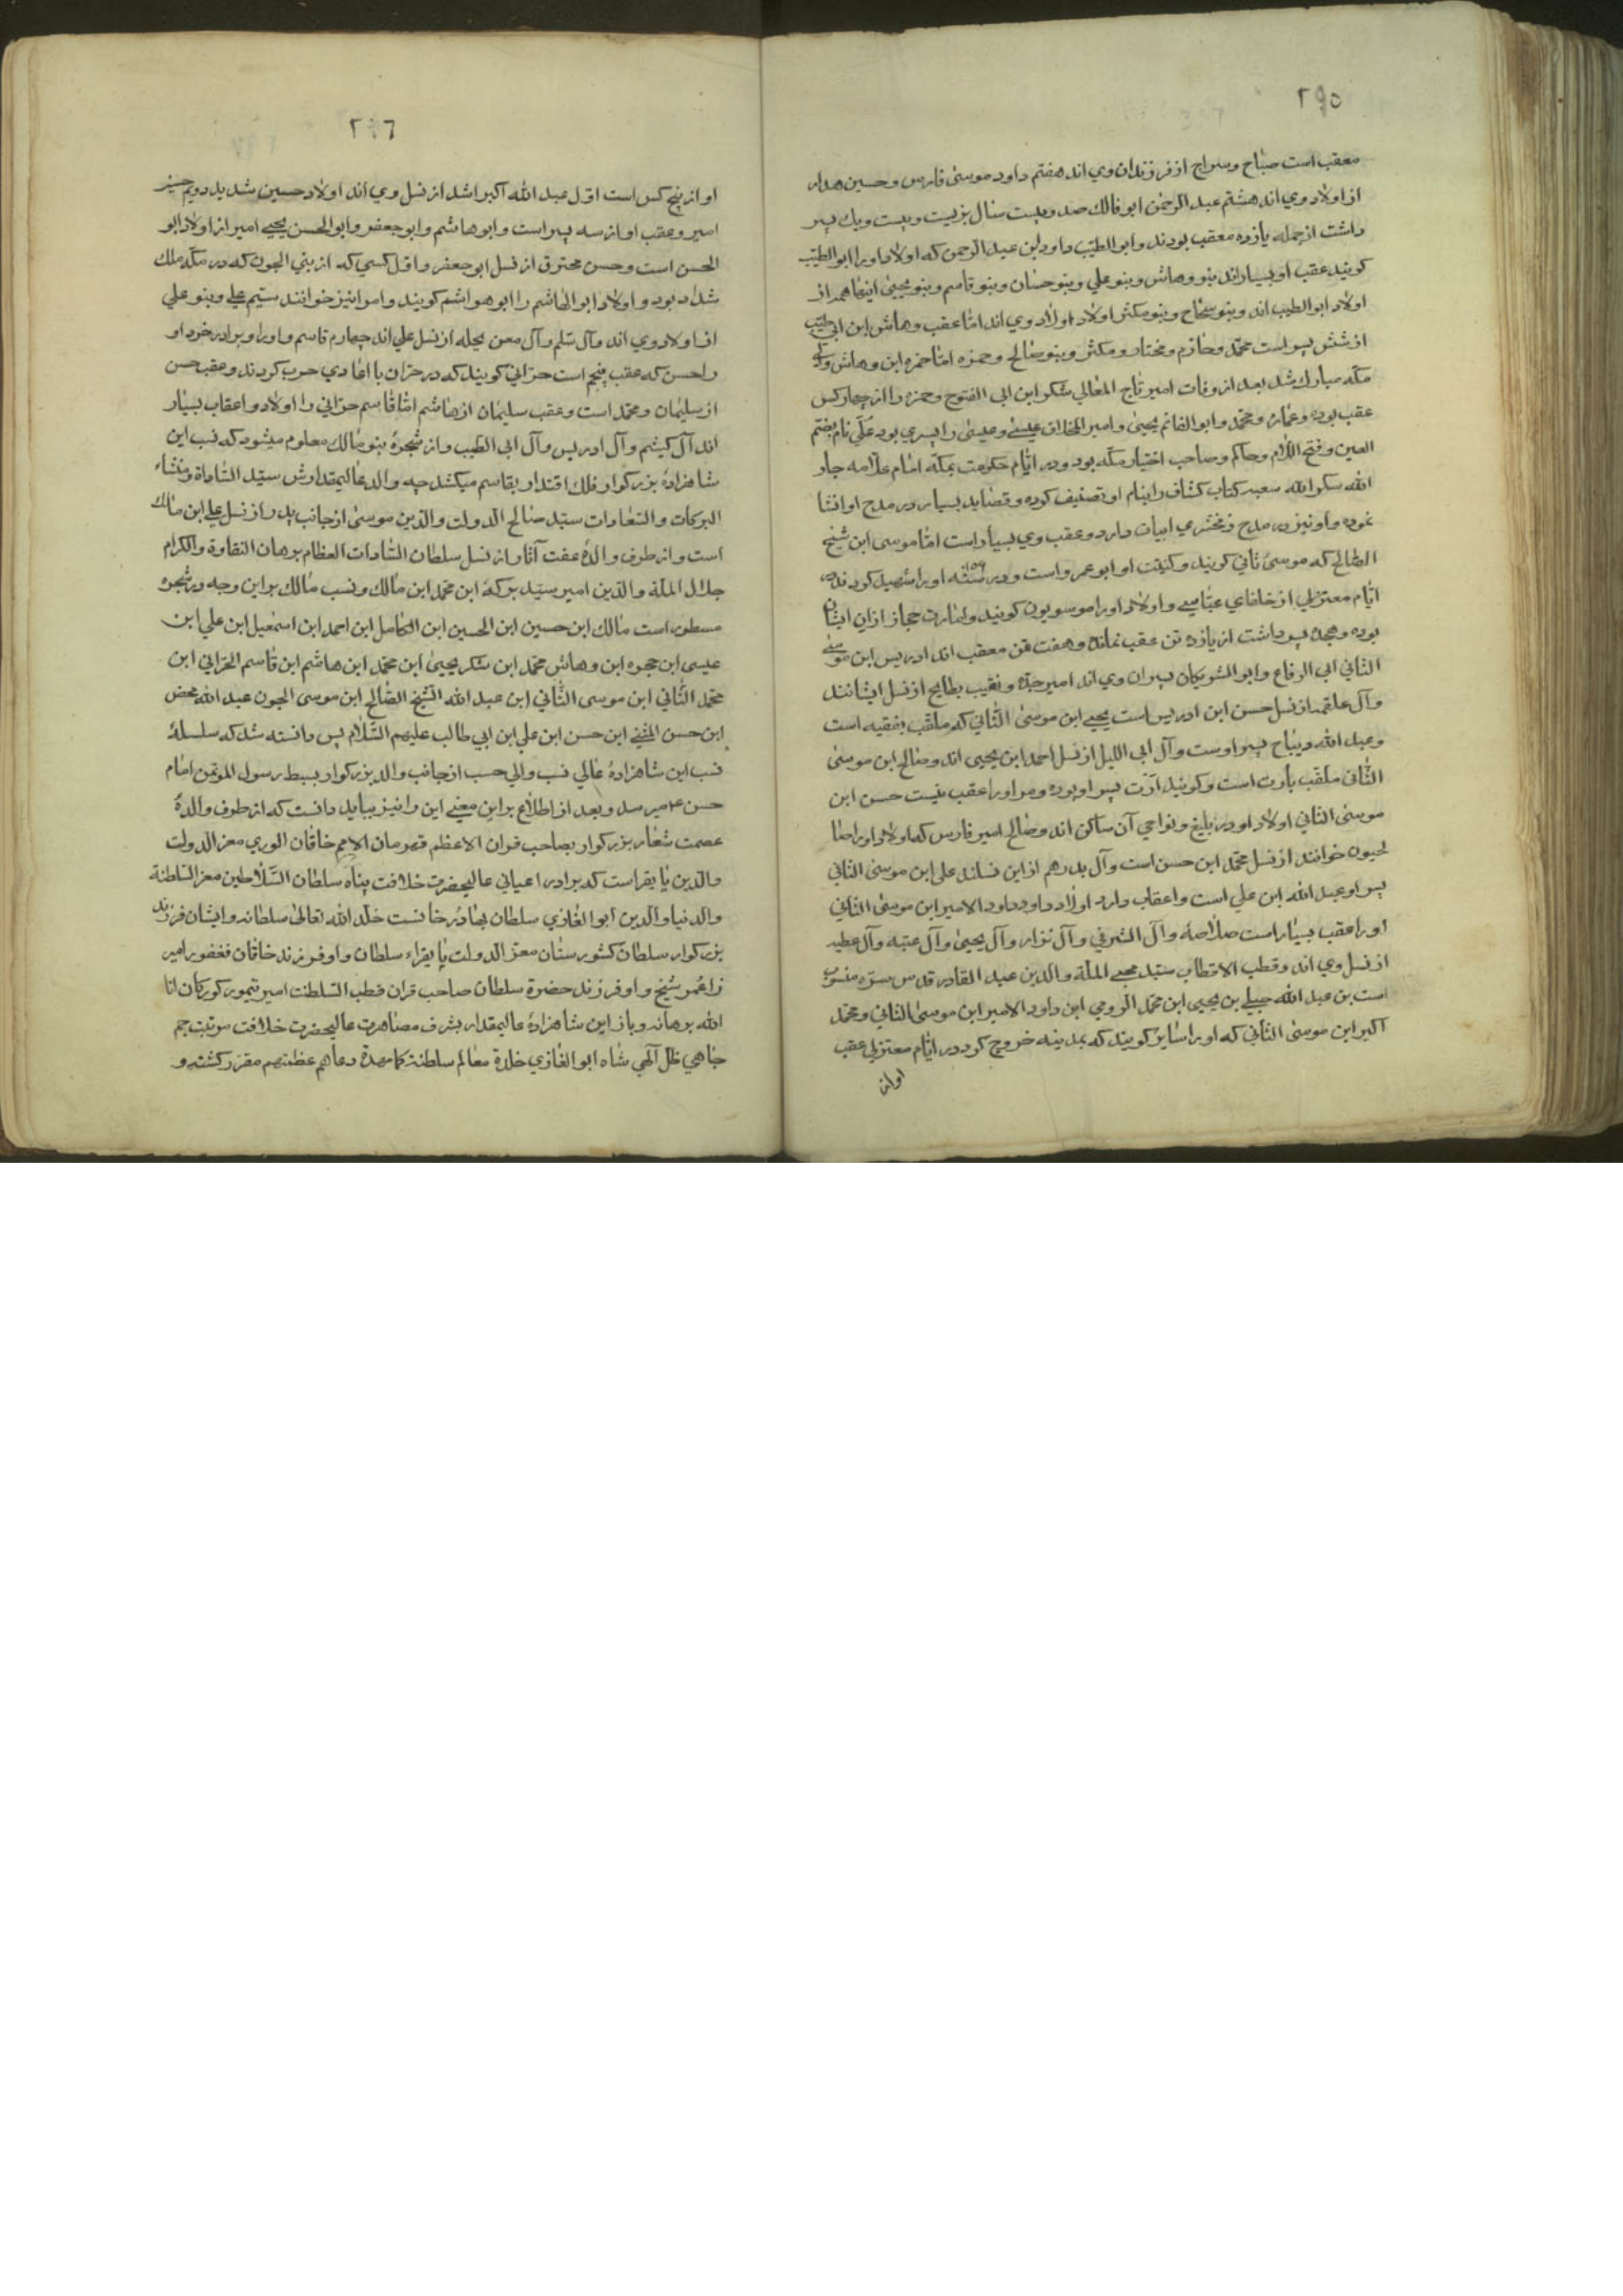 ۲۹۵
معقب است صباح و سراج از فرزندان وي اند هفتم داود موسى فارس و حسين هدار
از اولاد وي اند هشتم عبد الرحمن ابو فاتك صد و بيست سال بزيست و بيست و يك پسر
داشت از جمله يازده معقب بودند و ابو الطيب داود ابن عبد الرحمن كه اولاد او را ابو الطيب
كويند عقب او بسيار اند بنو وهاش و بنو علي و بنو حسان و بنو قاسم و بنو يحيى اينها همه از
اولاد ابو الطيب اند و بنو و بنو مكثر اولاد اولاد وي اند اما عقب وهاش ابن ابي طيب
از شش پسر است محمد و حازم و مختار و مكثر و بنو صالح و حمزه اما حمزه ابن وهاش والي
مكه مبارك شد بعد از وفات امير تاج المعالي شكر ابن ابي الفتوح و حمزه را از چهار كس
عقب بوده و عماره و محمد و ابو الغانم يحيى و امير عيسى و عيسى را پسري بود علي نام بضم
العين و فتح اللام و حاكم و صاحب اختيار مكه بود و در ايام حكومت بمكه امام علامه جار
الله شكر الله سعيه كتاب كشاف را بنام او تصنيف كرده و قصايد بسيار در مدح او انشا
نموده و او نيز در مدح زمخشري ابيات دارد و عقب وي بسيار است اما موسى ابن شيخ
الصالح كه موسىٔ ثاني كويند و كنيت او ابو عمرو است و در سنه او را شهيد كردند در
ايام معتز از خلفاي عباسي و اولاد او را موسويون كويند و امارت حجاز از ان ايشان
بوده و هجده پسر داشت از يازده تن عقب نمانده و هفت تن معقب اند ادريس ابن موسى
الثاني ابي الرفاع و ابو الشويكان پسران وي اند امير جده و نقيب بطايح از نسل ايشانند
و آل علقمه از نسل حسن ابن ادريس است يحيى ابن موسى الثاني كه ملقب بفقيه است
و عبد الله ديباج پسر اوست و آل ابي الليل از نسل احمد ابن يحيى اند و صالح ابن موسى
الثاني ملقب بارت است و كويند ارت پسر او بوده و مر او را عقب نيست حسن ابن
موسى الثاني اولاد او در و نواحي آن ساكن اند و صالح امير فارس كه اولاد او را صا
لحيون خوانند از نسل محمد ابن حسن است و آل بدر هم از اين نساند علي ابن موسى الثاني
پسر او عبد الله ابن علي است و اعقاب دارد اولاد داود داود الامير ابن موسى الثاني
او را عقب بسيار است و آل الشرفي و آل نزار و آل يحيى و آل عتبه و آل عطيه
از نسل وي اند و قطب الاقطاب سيد محيي الملة و الدين عبد القادر قدس سره منسوب
است بن عبد الله جيلي بن يحيى ابن محمد الرومي ابن داود الامير ابن موسى الثاني و محمد
اكبر ابن موسى الثاني كه او را كويند كه بمدينه خروج كرد در ايام معتز عقب
او از
۲۹٦
او از پنج كس است اول عبد الله اكبر اشد از نسل وي اند اولاد حسين شديد دويم حسين
امير و عقب او از سه پسر است و ابو هاشم و ابو جعفر و ابو الحسن يحيى امير از اولاد ابو
الحسن است و حسن محترق از نسل ابو جعفر و اول كسي كه از بني الجون كه در مكه ملك
شد او بود و اولاد ابو الهاشم را ابو هواشم كويند و امرا نيز خوانند سيم علي و بنو علي
از اولاد وي اند و آل سلم و آل معن بحله از نسل علي اند چهارم قاسم و او را و برادر خرد او
را حسن كه عقب پنجم است حراني كويند كه در حران با اعادي حرب كردند و عقب حسن
از سليمان و محمد است و عقب سليمان از هاشم اما قاسم حراني را اولاد و اعقاب بسيار
اند آل كيثم و آل ادريس و آل ابي الطيب و از شجرهٔ بنو مالك معلوم ميشود كه نسب اين
شاهزادهٔ بزركوار فلك اقتدار بقاسم ميكشد چه والد عاليمقدارش سيد السادات و منشاء
البركات و السعادات سيد صالح الدولت و الدين موسى از جانب پدر از نسل علي ابن مالك
است و از طرف والدهٔ عفت آثار از نسل سلطان السادات العظام برهان النقاوة و الكرام
جلال الملة و الدين امير سيد بركه ابن محمد ابن مالك و نسب مالك بر اين وجه در شجره
مسطور است مالك ابن حسين ابن الحسين ابن الكامل ابن احمد ابن اسمعيل ابن علي ابن
عيسى ابن حمزه ابن وهاش محمد ابن شكر يحيى ابن محمد ابن هاشم ابن قاسم الحراني ابن
محمد الثاني ابن موسى الثاني ابن عبد الله الشيخ الصالح ابن موسى الجون عبد الله محض
ابن حسن المثنى ابن حسن ابن علي ابن ابي طالب عليهم السلام پس دانسته شد كه سلسلهٔ
نسب اين شاهزادهٔ عالي نسب والي حسب از جانب والد بزركوار بسبط رسول المؤتمن امام
حسن ع ميرسد و بعد از اطلاع بر اين معني اين را نيز ببايد دانست كه از طرف والدهٔ
عصمت شعار بزركوار بصاحب قران الاعظم قهرمان الامم خاقان الوري معز الدولت
و الدين بايقراست كه برادر اعياني عاليحضرت خلافت پناه سلطان السلاطين معز السلطنة
و الدنيا و الدين ابو الغازي سلطان بهادر خانست خلد الله تعالى سلطانه و ايشان فرزند
بزركوار سلطان كشورستان معز الدولت بايقراء سلطان و او فرزند خاقان فغفور امير
زا عمر شيخ و او فرزند حضرة سلطان صاحب قران قطب السلطنت امير تيمور كوركان انا
الله برهانه و باز اين شاهزادهٔ عاليمقدار بشرف مصاهرت عاليحضرت خلافت مرتبت جم
جاهي ظل الهي شاه ابو الغازي خلدة معالم سلطنة كما مهدة دعاهم عظمتهم مقرر كشته و